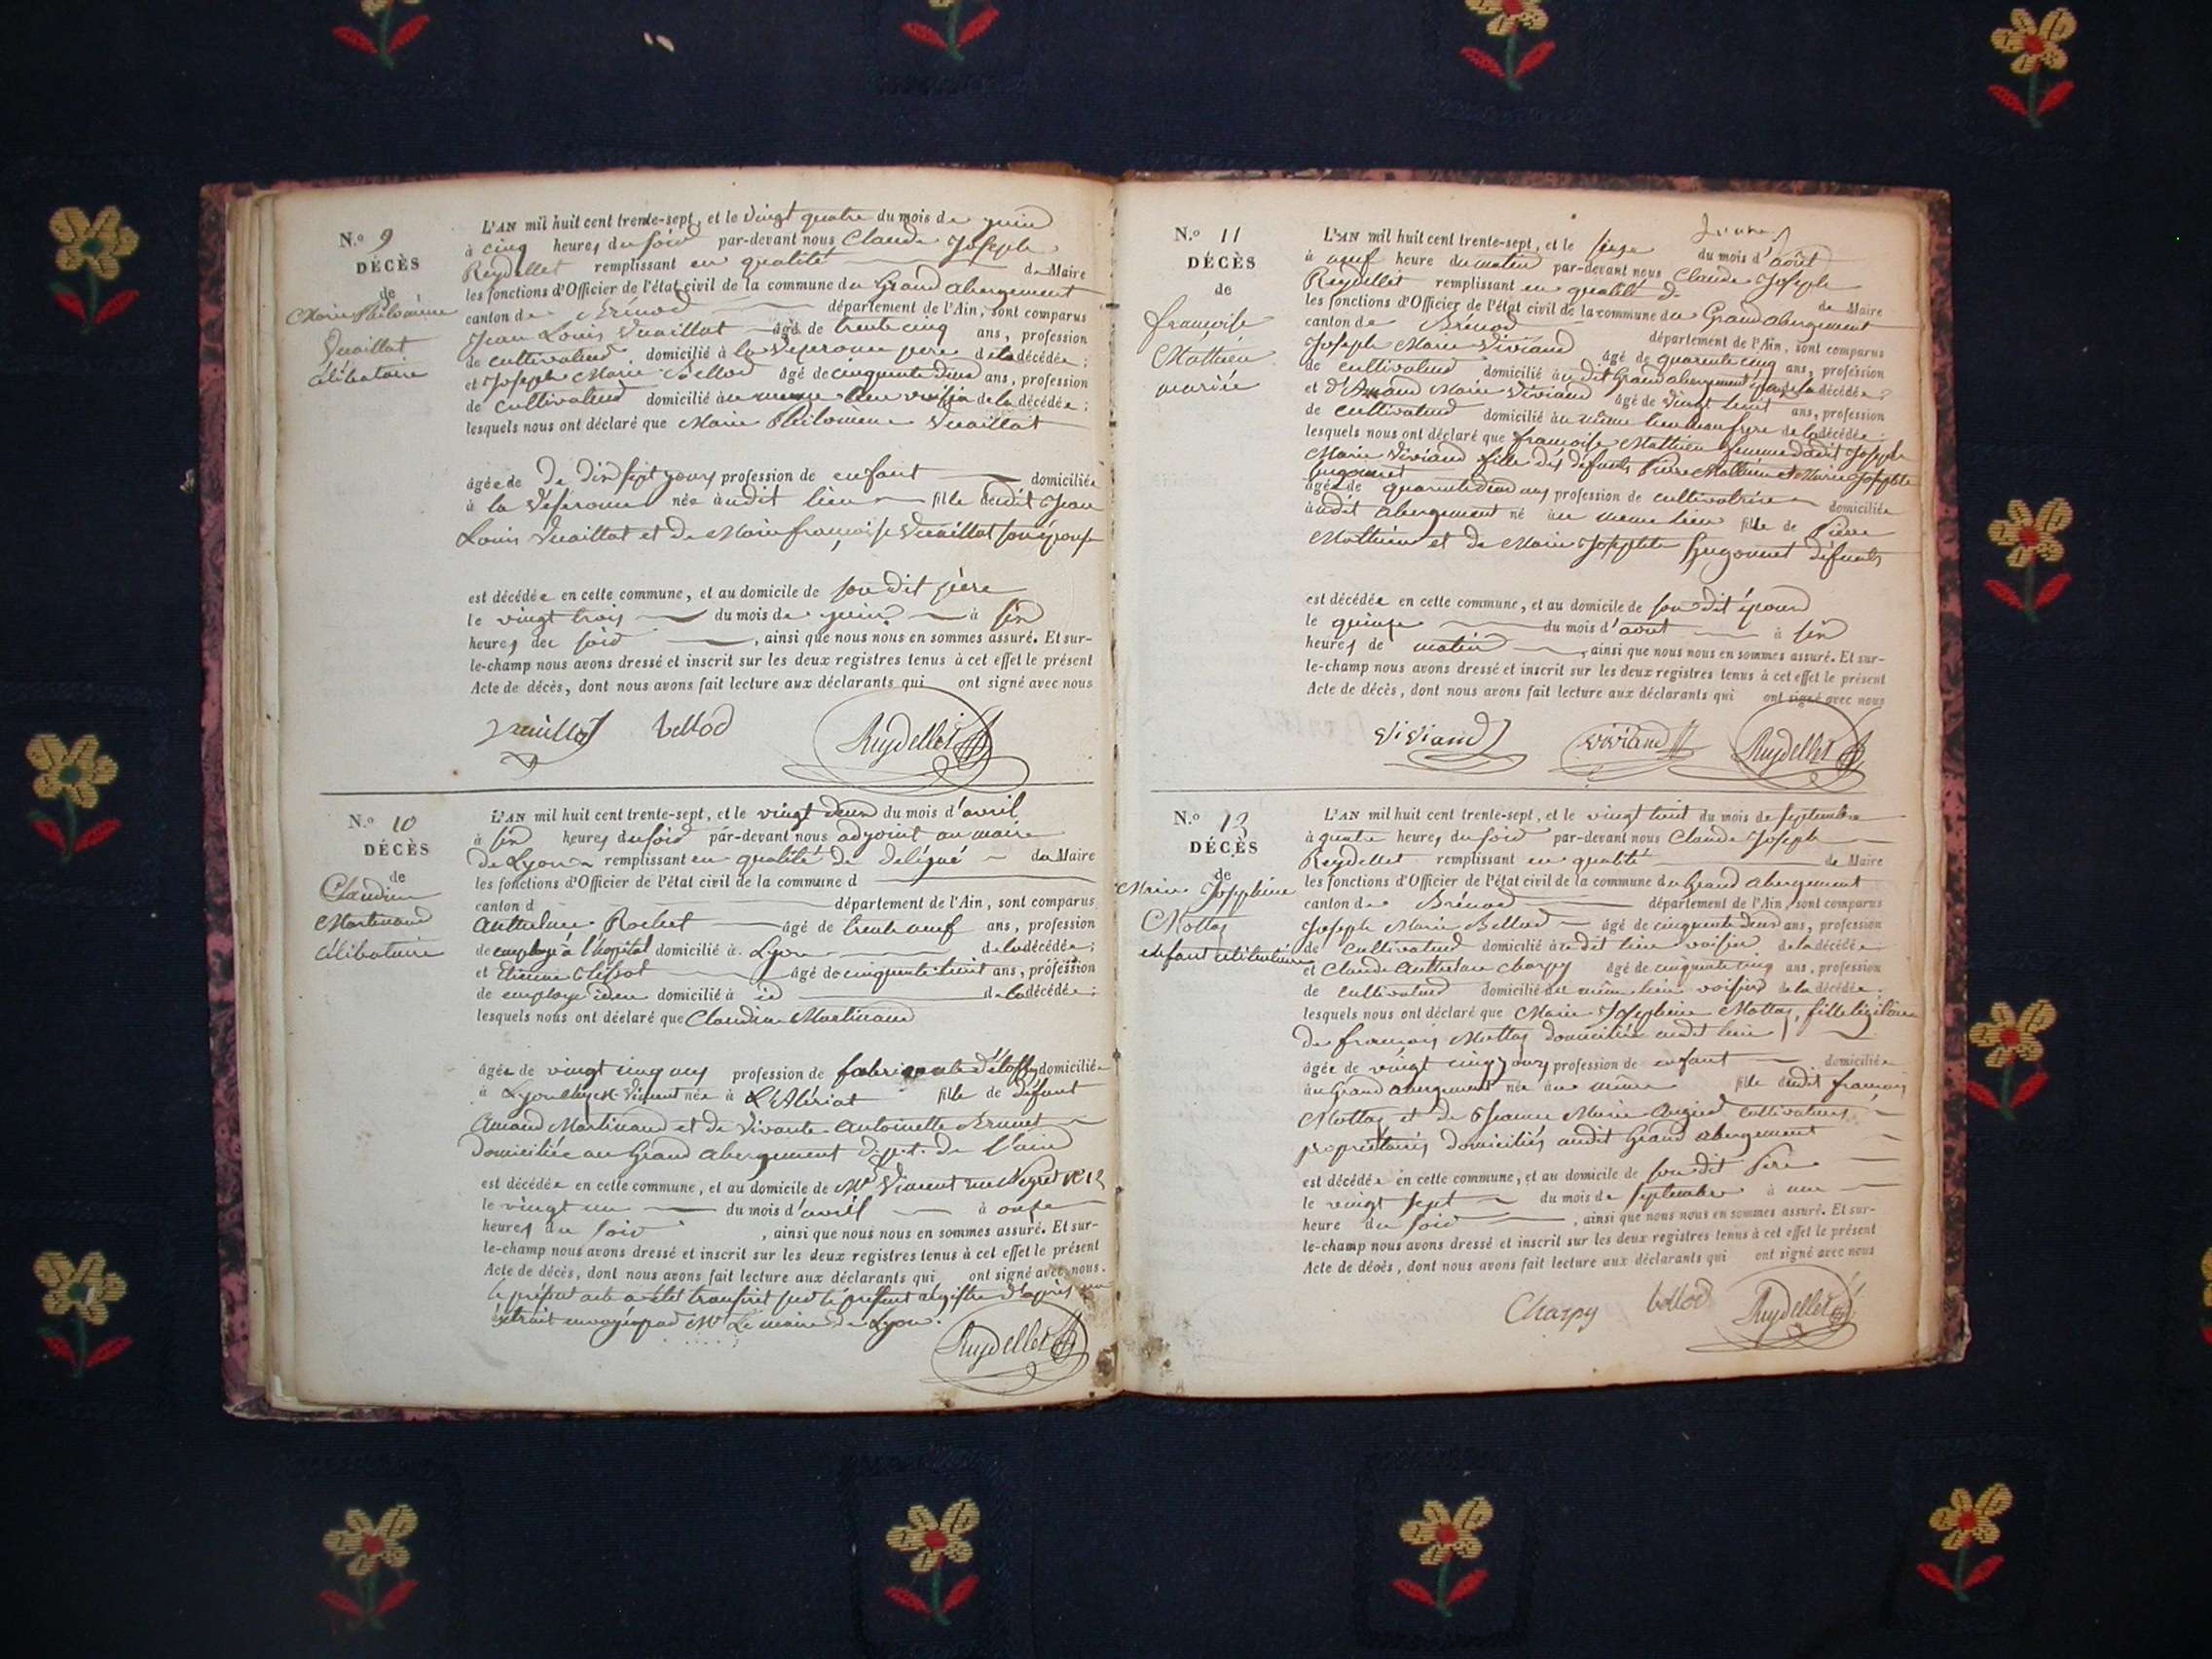 N.º 9
DÉCÈS
de
Marie Philomène
Vuaillat
célibataire
L'AN mil huit cent trente-sept, et le vingt quatre du mois de juin
à cinq heures du soir par-devant nous Claude Joseph
Reydellet remplissant en qualité de Maire
les fonctions d'Officier de l'état civil de la commune du Grand abergement
canton de Brénod département de l'Ain, sont comparus
Jean Louis Vuaillat âgé de trente cinq ans, profession
de cultivateur domicilié à la père de la décédée;
et Joseph Marie Bellod âgé de cinquante deux ans, profession
de cultivateur domicilié au même lieu voisin de la décédée;
lesquels nous ont déclaré que Marie Philomène Vuaillat
âgée de De dix sept jours profession de enfant domiciliée
à la née audit lieu fille dudit Jean
Louis Vuaillat et de Marie françoise Vuaillat son épouse
est décédée en cette commune, et au domicile de son dit père
le vingt trois du mois de juin à six
heures du soir, ainsi que nous nous en sommes assuré. Et sur-
le-champ nous avons dressé et inscrit sur les deux registres tenus à cet effet le présent
Acte de décès, dont nous avons fait lecture aux déclarants qui ont signé avec nous
Vuaillat bellod Reydellet
N.º 10
DÉCÈS
de
Claudine
Martinand
célibataire
L'AN mil huit cent trente-sept, et le vingt deux du mois d'avril
à six heures du soir par-devant nous adjoint au maire
de Lyon remplissant en qualité de délégué du Maire
les fonctions d'Officier de l'état civil de la commune d
canton d département de l'Ain, sont comparus
Anthelme Rochet âgé de trente neuf ans, profession
de employé à l'hopital domicilié à Lyon de la décédée;
et Etienne âgé de cinquante huit ans, profession
de employé idem domicilié à id de la décédée;
lesquels nous ont déclaré que Claudine Martinand
âgée de vingt cinq ans profession de fabricante d'étoffes domiciliée
à Lyon née à L'Alériat fille de défunt
Amand Martinand et de vivante Antoinette Brunet
domiciliée au Grand abergement dépt. de l'ain
est décédée en cette commune, et au domicile de Mr Vincent rue Neyret Nº 12
le vingt un du mois d'avril à onze
heures du soir, ainsi que nous nous en sommes assuré. Et sur-
le-champ nous avons dressé et inscrit sur les deux registres tenus à cet effet le présent
Acte de décès, dont nous avons fait lecture aux déclarants qui ont signé avec nous.
le présent acte a été transcrit sur le présent registre d'après un
extrait envoyé par Mr Le maire de Lyon.
Reydellet
N.º 11
DÉCÈS
de
françoise
Mathieu
mariée
L'AN mil huit cent trente-sept, et le seize du mois d'août
à neuf heure du matin par-devant nous Claude Joseph
Reydellet remplissant en qualité de de Maire
les fonctions d'Officier de l'état civil de la commune du Grand abergement
canton de Brénod département de l'Ain, sont comparus
Joseph Marie Viviand âgé de quarante cinq ans, profession
de cultivateur domicilié audit Grand abergement de la décédée;
et d'Amand Marie Viviand âgé de vingt huit ans, profession
de cultivateur domicilié au même lieu beau frère de la décédée
lesquels nous ont déclaré que françoise Mathieu femme dudit Joseph
Marie Viviand fille des défunts Pierre Mathieu et Marie Josephte
hugonnet
âgée de quarante deux ans profession de cultivatrice domiciliée
audit abergement né au même lieu fille de Pierre
Mathieu et de Marie Josephte hugonnet défunts
est décédée en cette commune, et au domicile de son dit époux
le quinze du mois d'aout à six
heures de matin, ainsi que nous nous en sommes assuré. Et sur-
le-champ nous avons dressé et inscrit sur les deux registres tenus à cet effet le présent
Acte de décès, dont nous avons fait lecture aux déclarants qui ont signé avec nous
Viviand viviand Reydellet
N.º 12
DÉCÈS
de
Marie Josephine
Mottaz
enfant célibataire
L'AN mil huit cent trente-sept, et le vingt huit du mois de septembre
à quatre heures du soir par-devant nous Claude Joseph
Reydellet remplissant en qualité de Maire
les fonctions d'Officier de l'état civil de la commune du Grand abergement
canton de Brénod département de l'Ain, sont comparus
Joseph Marie Bellod âgé de cinquante deux ans, profession
de cultivateur domicilié audit lieu voisin de la décédée
et Claude Anthelme Charpy âgé de cinquante cinq ans, profession
de cultivateur domicilié au même lieu voisin de la décédée;
lesquels nous ont déclaré que Marie Josephine Mottaz, fille légitime
de françois Mottaz domiciliée audit lieu
âgée de vingt cinq jours profession de enfant domiciliée
au Grand abergement née au même fille dudit françois
Mottaz et de Jeanne Marie cultivateurs
propriétaires domiciliés audit Grand abergement
est décédée en cette commune, et au domicile de son dit Père
le vingt sept du mois de septembre à une
heure du soir, ainsi que nous nous en sommes assuré. Et sur-
le-champ nous avons dressé et inscrit sur les deux registres tenus à cet effet le présent
Acte de décès, dont nous avons fait lecture aux déclarants qui ont signé avec nous
Charpy bellod Reydellet